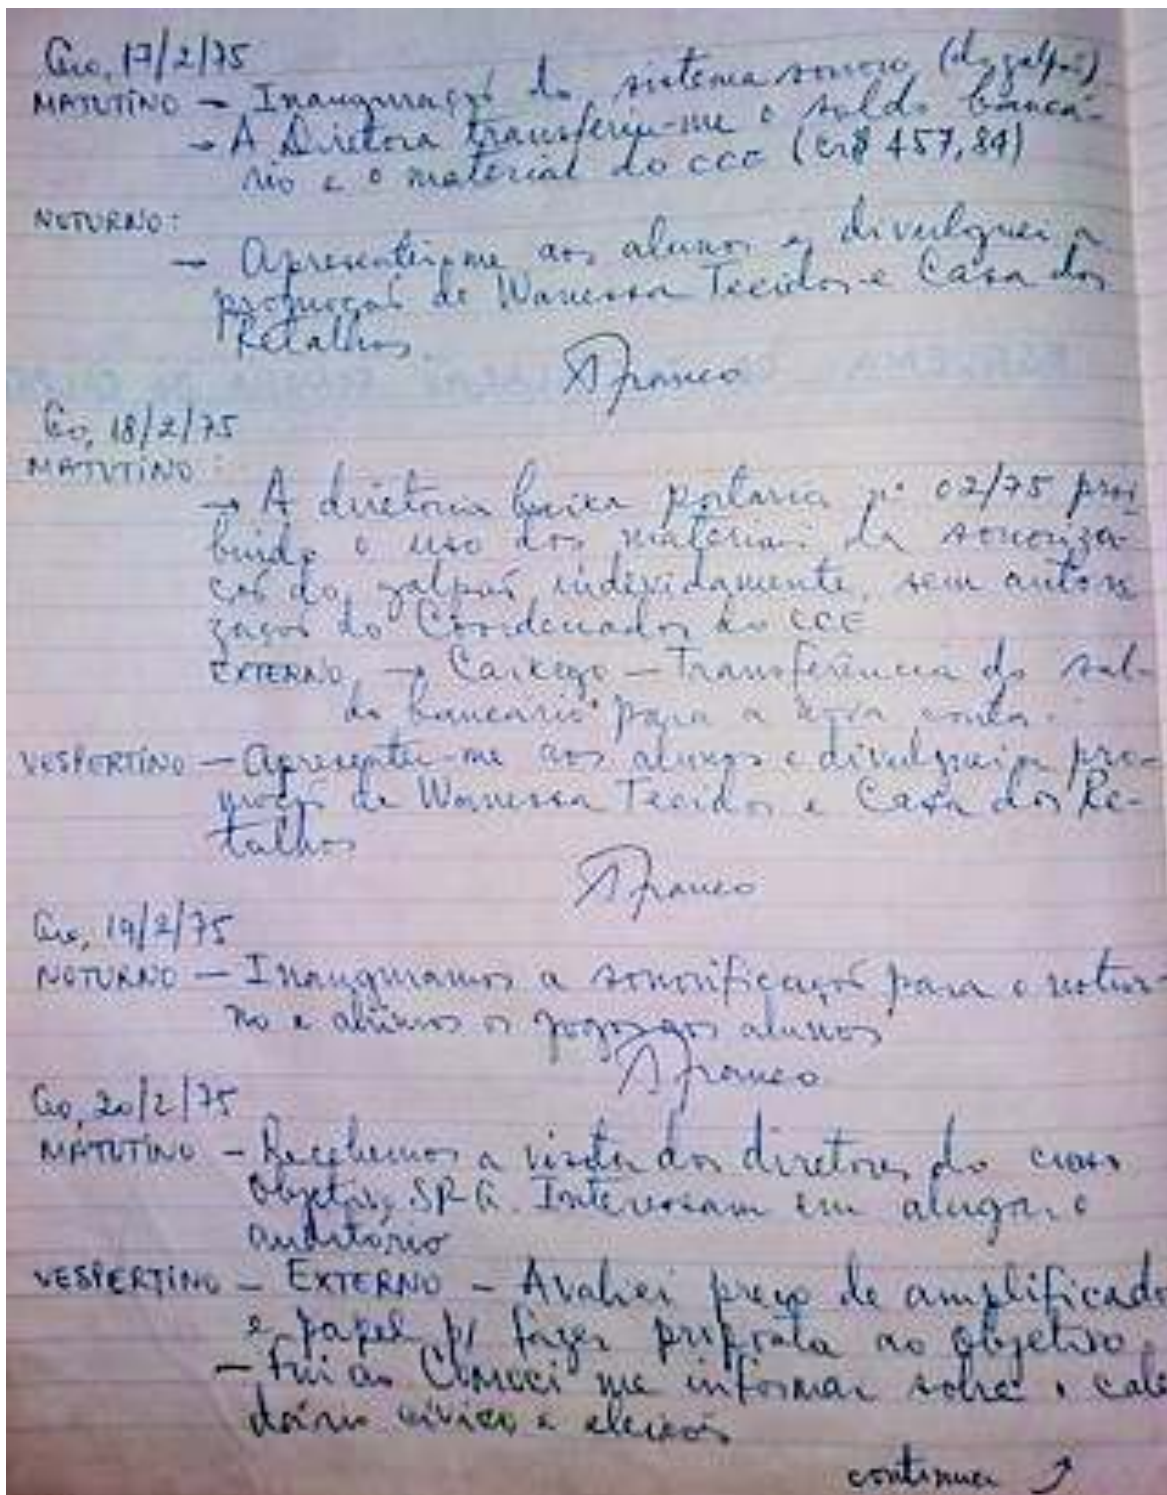 Go, 17/2/75
MATUTINO - Inauguração do sistema sonoro (do galpão)
→ A Diretora transferiu-me o saldo bancá-
rio e o material do CCE (cr$ 457,84)
NOTURNO:
→ Apresentei-me aos alunos e divulguei a
promoção de Wanessa Tecidos e Casa dos
Retalhos
AFranco
Go, 18/2/75
MATUTINO:
→ A diretoria baixa portaria nº 02/75 proi
bindo o uso dos materiais da sonoriza-
ção do galpão indevidamente, sem autori
zação do Coordenador do CCE
EXTERNO → Caixego - Transferência do sal-
do bancário para a nova conta.
VESPERTINO - Apresentei-me aos alunos e divulguei a pro-
moção de Wanessa Tecidos e Casa dos Re-
talhos
AFranco
Go, 19/2/75
NOTURNO - Inauguramos a sonorificação para o notur-
no e abrimos os jogos aos alunos
AFranco
Go, 20/2/75
MATUTINO - Recebemos a visita dos diretores do curso
Objetivo, Interessam em alugar o
auditório
VESPERTINO - EXTERNO - Avaliei preço de amplificado
e papel p/ fazer proposta ao Objetivo.
- Fui ao me informar sobre o cale
dário cívico e eleição
continua